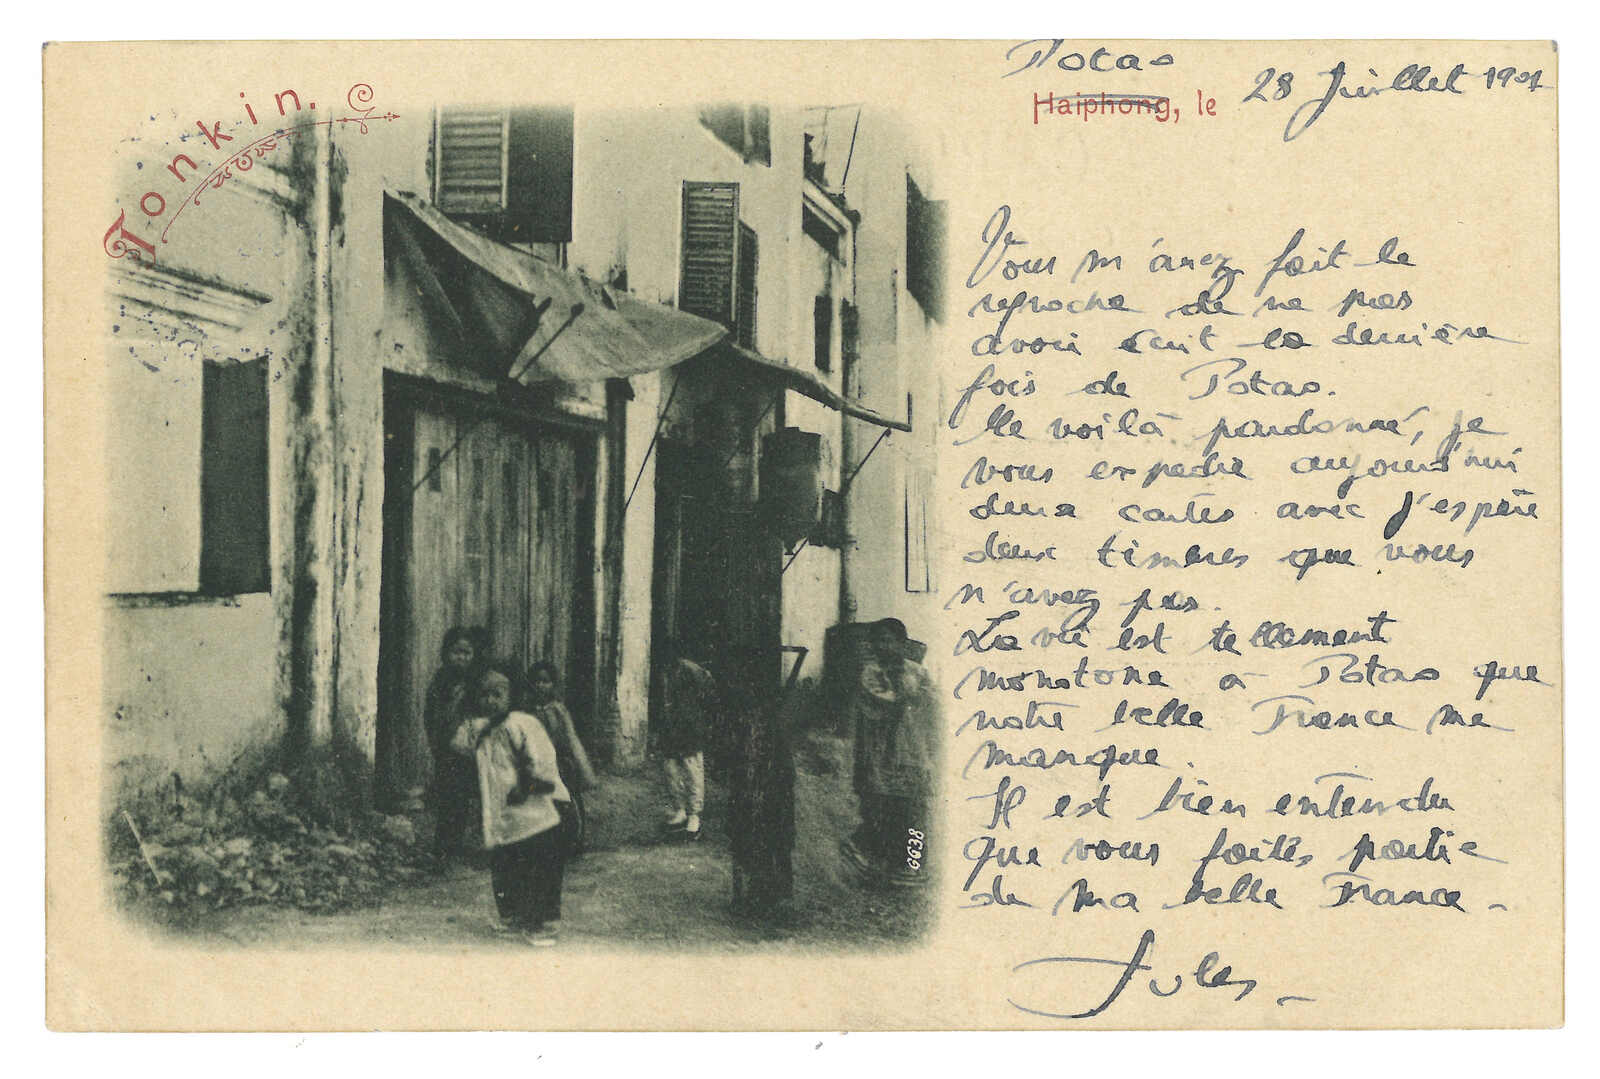 Tonkin.
Potao
Haiphong, le 28 Juillet 1901
Vous m'avez fait le
reproche de ne pas
avoir écrit la dernière
fois de Potao.
Me voilà pardonné, je
vous expédie aujourd'hui
deux cartes avec j'espère
deux timbres que vous
n'avez pas.
La vie est tellement
monotone à Potao que
notre belle France me
manque.
Il est bien entendu
que vous faites partie
de ma belle France.
Jules
6638